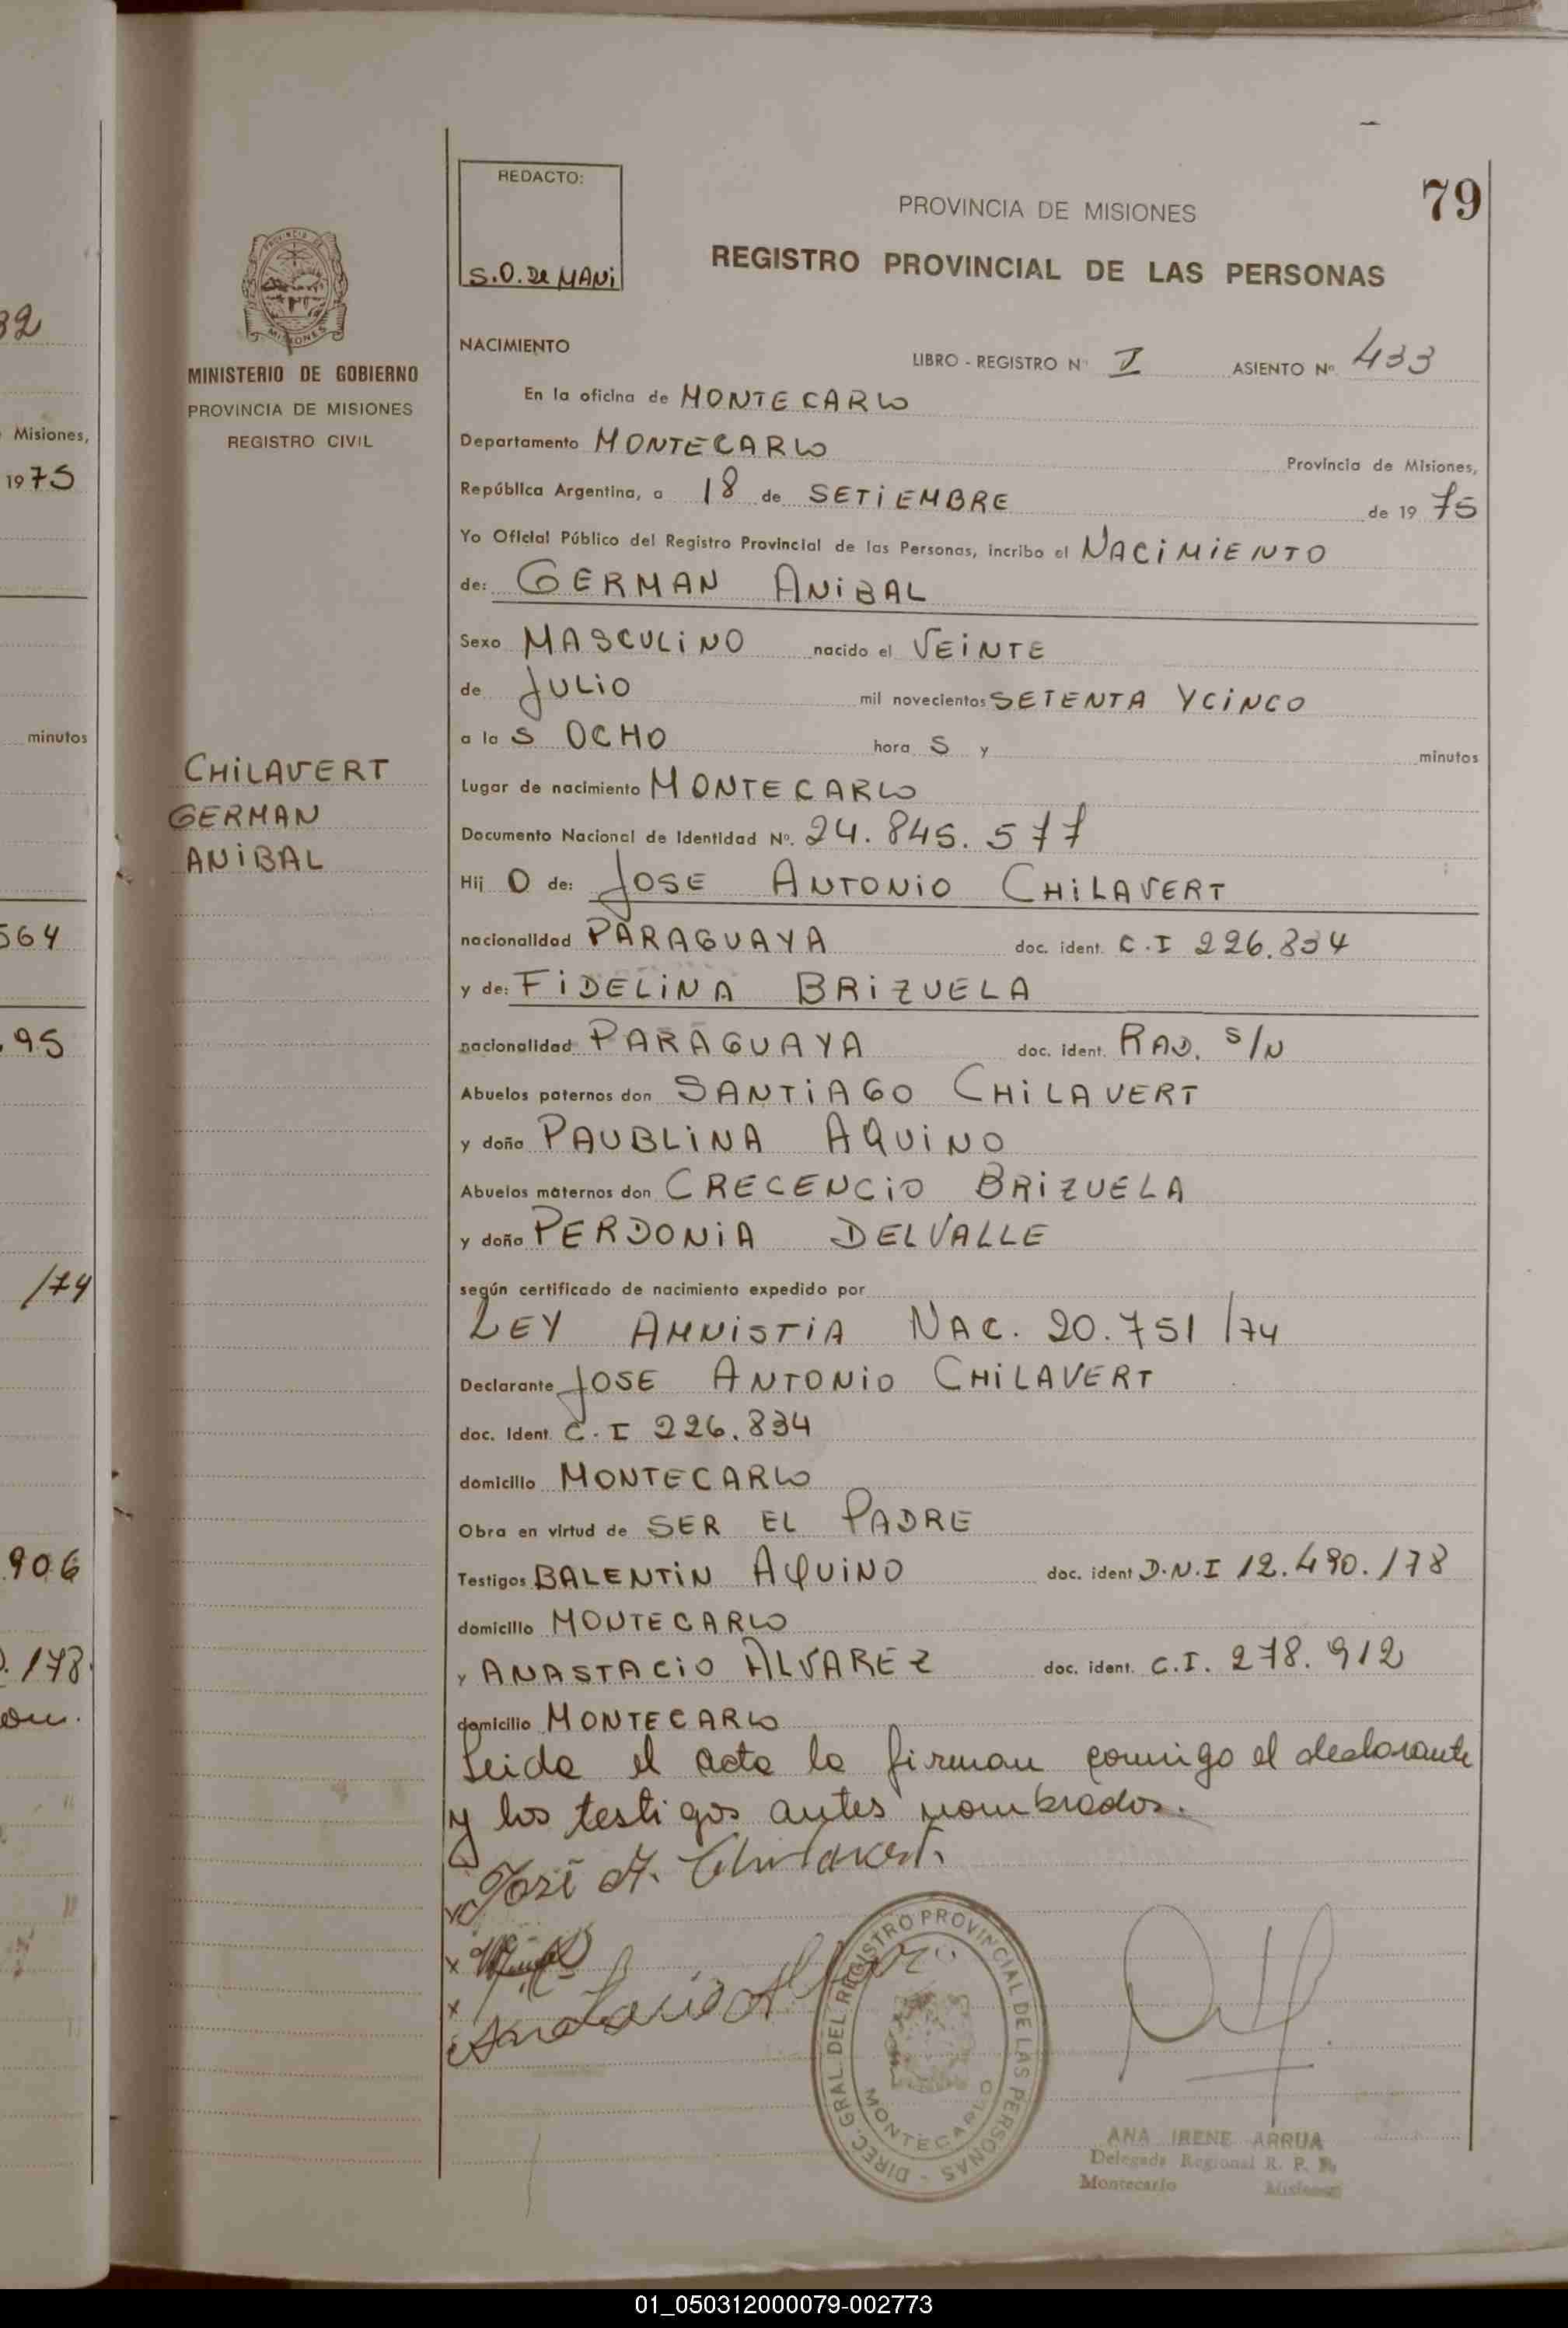 32
Misiones,
1975
minutos
564
.95
/74
906
.178.
REDACTO:
S.O. De MANi
PROVINCIA DE MISIONES
79
REGISTRO PROVINCIAL DE LAS PERSONAS
MINISTERIO DE GOBIERNO
PROVINCIA DE MISIONES
REGISTRO CIVIL
CHiLAVERT
GERMAN
ANiBAL
NACIMIENTO
LIBRO - REGISTRO Nº I ASIENTO Nº 433
En la oficina de MONTECARLO
Departamento MONTECARLO Provincia de Misiones,
República Argentina, a 18 de SETiEMBRE de 19 75
Yo Oficial Público del Registro Provincial de las Personas, incribo el NACiMiENTO
de: GERMAN ANiBAL
Sexo MASCULiNO nacido el VEiNTE
de JULiO mil novecientos SETENTA Y CiNCO
a la S OCHO hora S y minutos
Lugar de nacimiento MONTECARLO
Documento Nacional de Identidad Nº. 24.845.577
Hij O de: JOSE ANTONiO CHiLAVERT
nacionalidad PARAGUAYA doc. ident. C.I 226.834
y de: FiDELiNA BRiZUELA
nacionalidad PARAGUAYA doc. ident. RAD. S/N
Abuelos paternos don SANTiAGO CHiLAVERT
y doña PAUBLiNA AQUiNO
Abuelos maternos don CRECENCiO BRiZUELA
y doña PERDONiA DELVALLE
según certificado de nacimiento expedido por
LEY AMNiSTiA NAC. 20.751/74
Declarante JOSE ANTONiO CHiLAVERT
doc. Ident C.I 226.834
domicilio MONTECARLO
Obra en virtud de SER EL PADRE
Testigos BALENTiN AQUiNO doc. ident D.N.I 12.490.178
domicilio MONTECARLO
y ANASTACiO ALVAREZ doc. ident. C.I. 278.912
domicilio MONTECARLO
Leida el acta la firman comigo el declarante
y los testigos antes nombrados.
José A. Chilavert.
Anastacio Alvarez
DIREC. GRAL. DEL REGISTRO PROVINCIAL DE LAS PERSONAS -
MONTECARLO
ANA IRENE ARRUA
Delegada Regional R. P. P.
Montecarlo Misiones
01_050312000079-002773